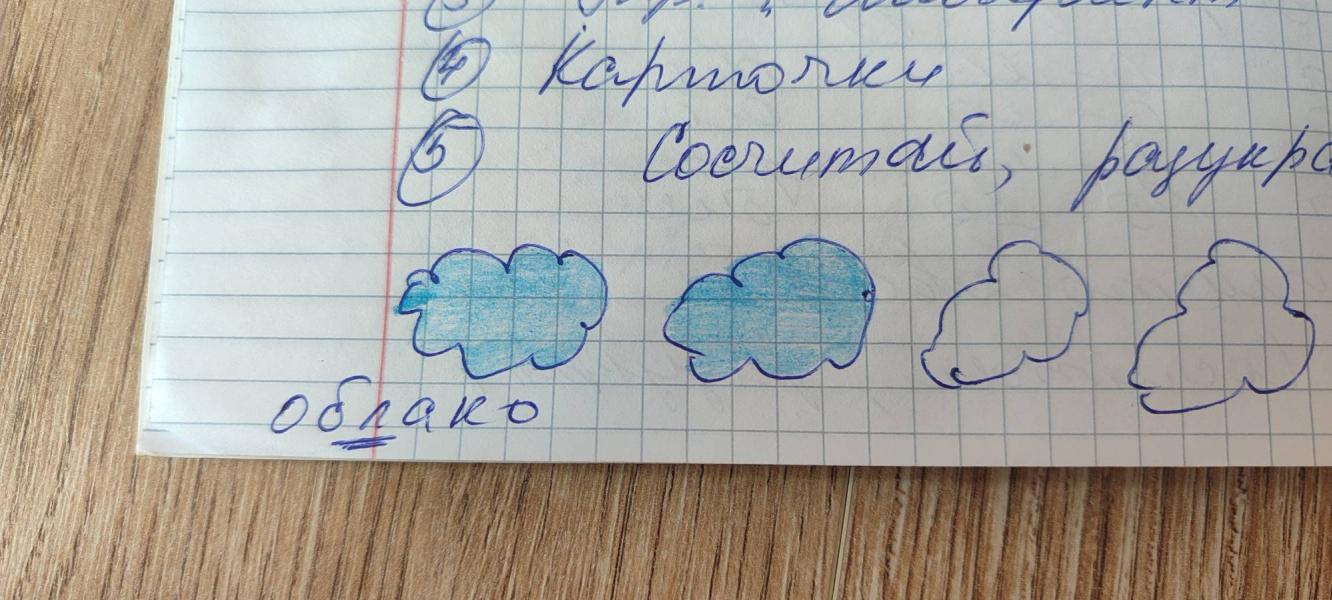 ④ Карточки
⑤ Сосчитай; разукра
облако